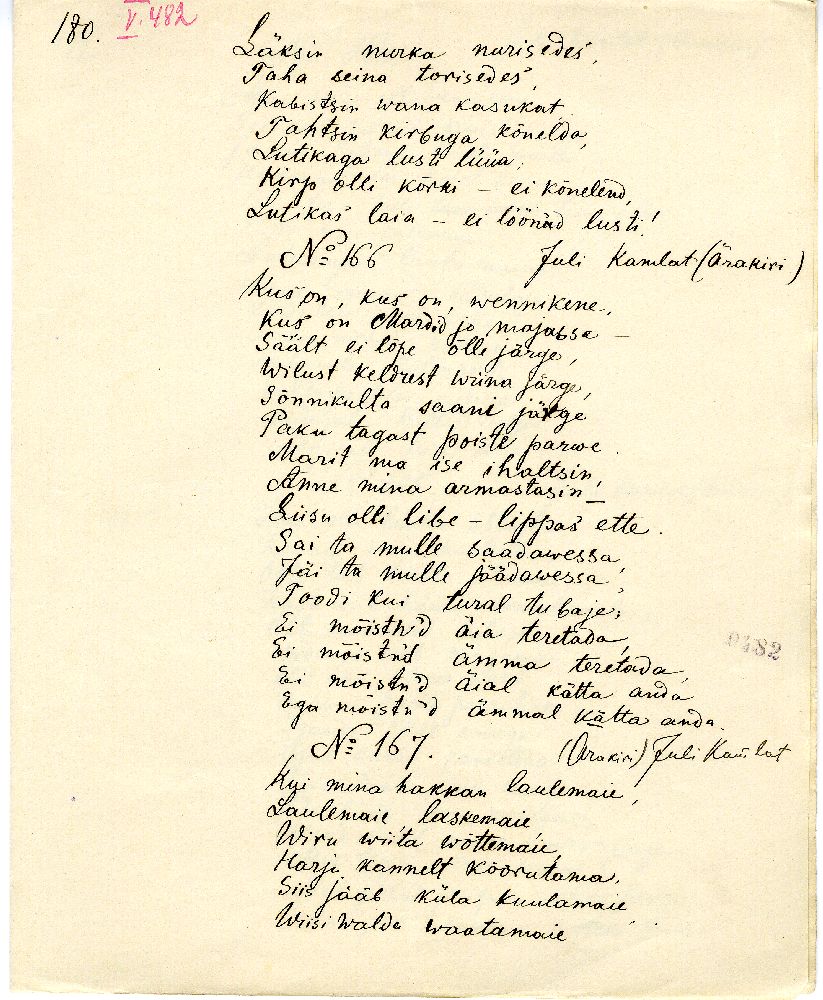 180. V. 482
Läksin nurka nurisedes,
Taha seina torisedes,
Kabistsin wana kasukat,
Tahtsin kirbuga kõnelda,
Lutikaga lusti lüüa,
Kirp olli kõrki – ei kõnelend,
Lutikas laia – ei löönud lusti!
No 166 Juli Kamlat (Ärakiri)
Kus on, kus on, wennikene,
Kus on Mardid jo majassa –
Säält ei lõpe õlle järge,
Wilust keldrest wiina järge,
Sõnnikulta saani järge
Paku tagast poiste parwe.
Marit ma ise ihaltsin,
Anne mina armastasin –
Liisu olli libe – lippas ette.
Sai ta mulle saadawessa,
Jäi ta mulle jäädawessa,
Toodi kui tural tubaje;
Ei mõistn'd äia teretada,
Ei mõistn'd ämma teretada,
Ei mõistn'd äial kätta anda
Ega mõistn'd ämmal kätta anda.
0482
No 167. (Ärakiri) Juli Kamlat
Kui mina hakkan laulemaie,
Laulemaie laskemaie
Wiru wiita wõttemaie,
Harju kannelt köörutama,
Siis jääb küla kuulamaie,
Wiisi walda waatamaie